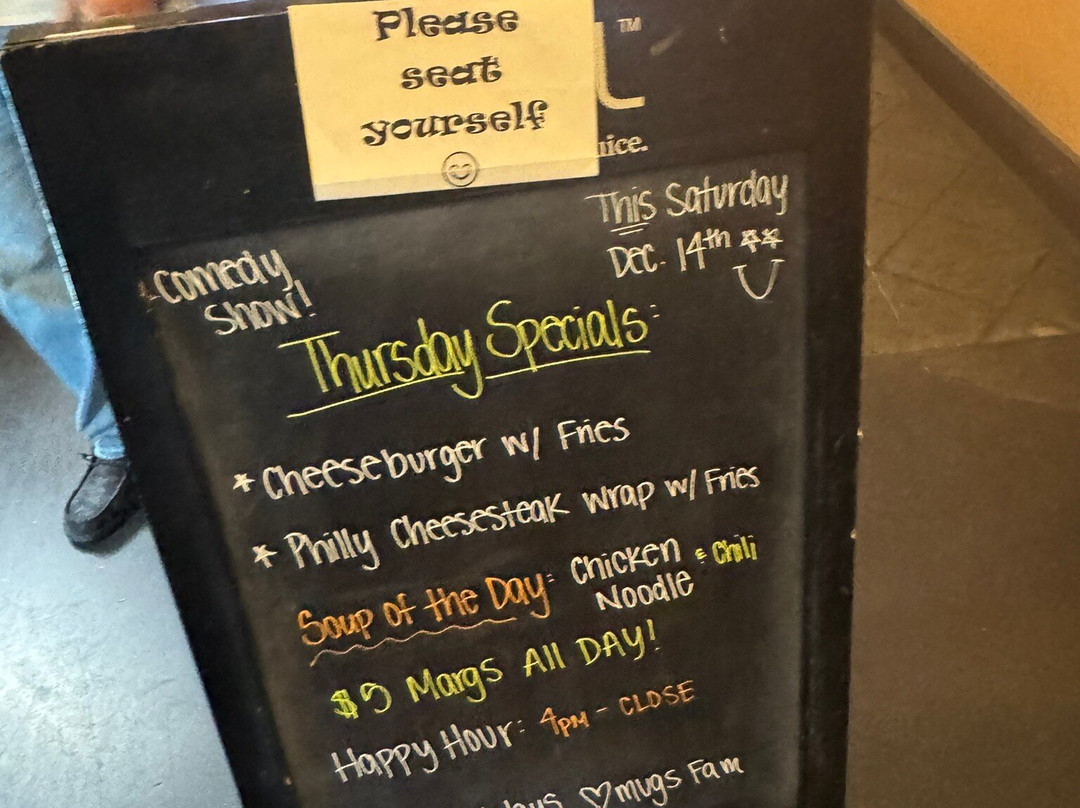 Please
seat
yourself
TM
This Saturday
Dec. 14th
Comedy
Show!
Thursday Specials:
* Cheeseburger w/ Fries
* Philly Cheesesteak Wrap w/ Fries
Soup of the Day: Chicken & Chili
Noodle
$5 Margs All DAY!
Happy Hour: 4PM - CLOSE
♡ mugs Fam